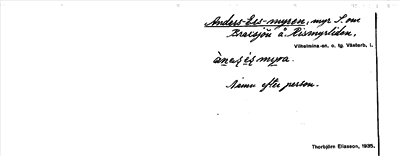 Anders-Les-myren, myr S. om
Kraksjön å Rismyrliden.
Vilhelmina-sn. o. tg. Västerb. l.
ànəsésmyra.
Namn efter person.
Thorbjörn Eliasson, 1935.